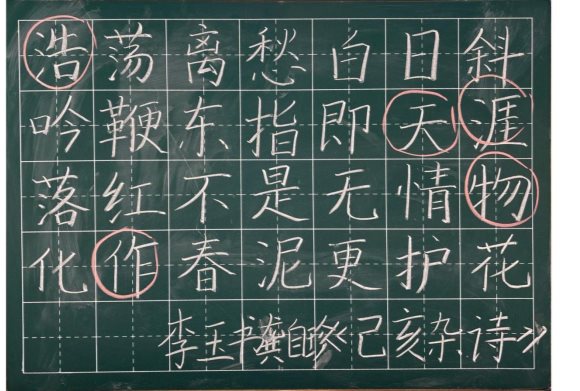 浩荡离愁白日斜
吟鞭东指即天涯
落红不是无情物
化作春泥更护花
李王书龚自珍《己亥杂诗》